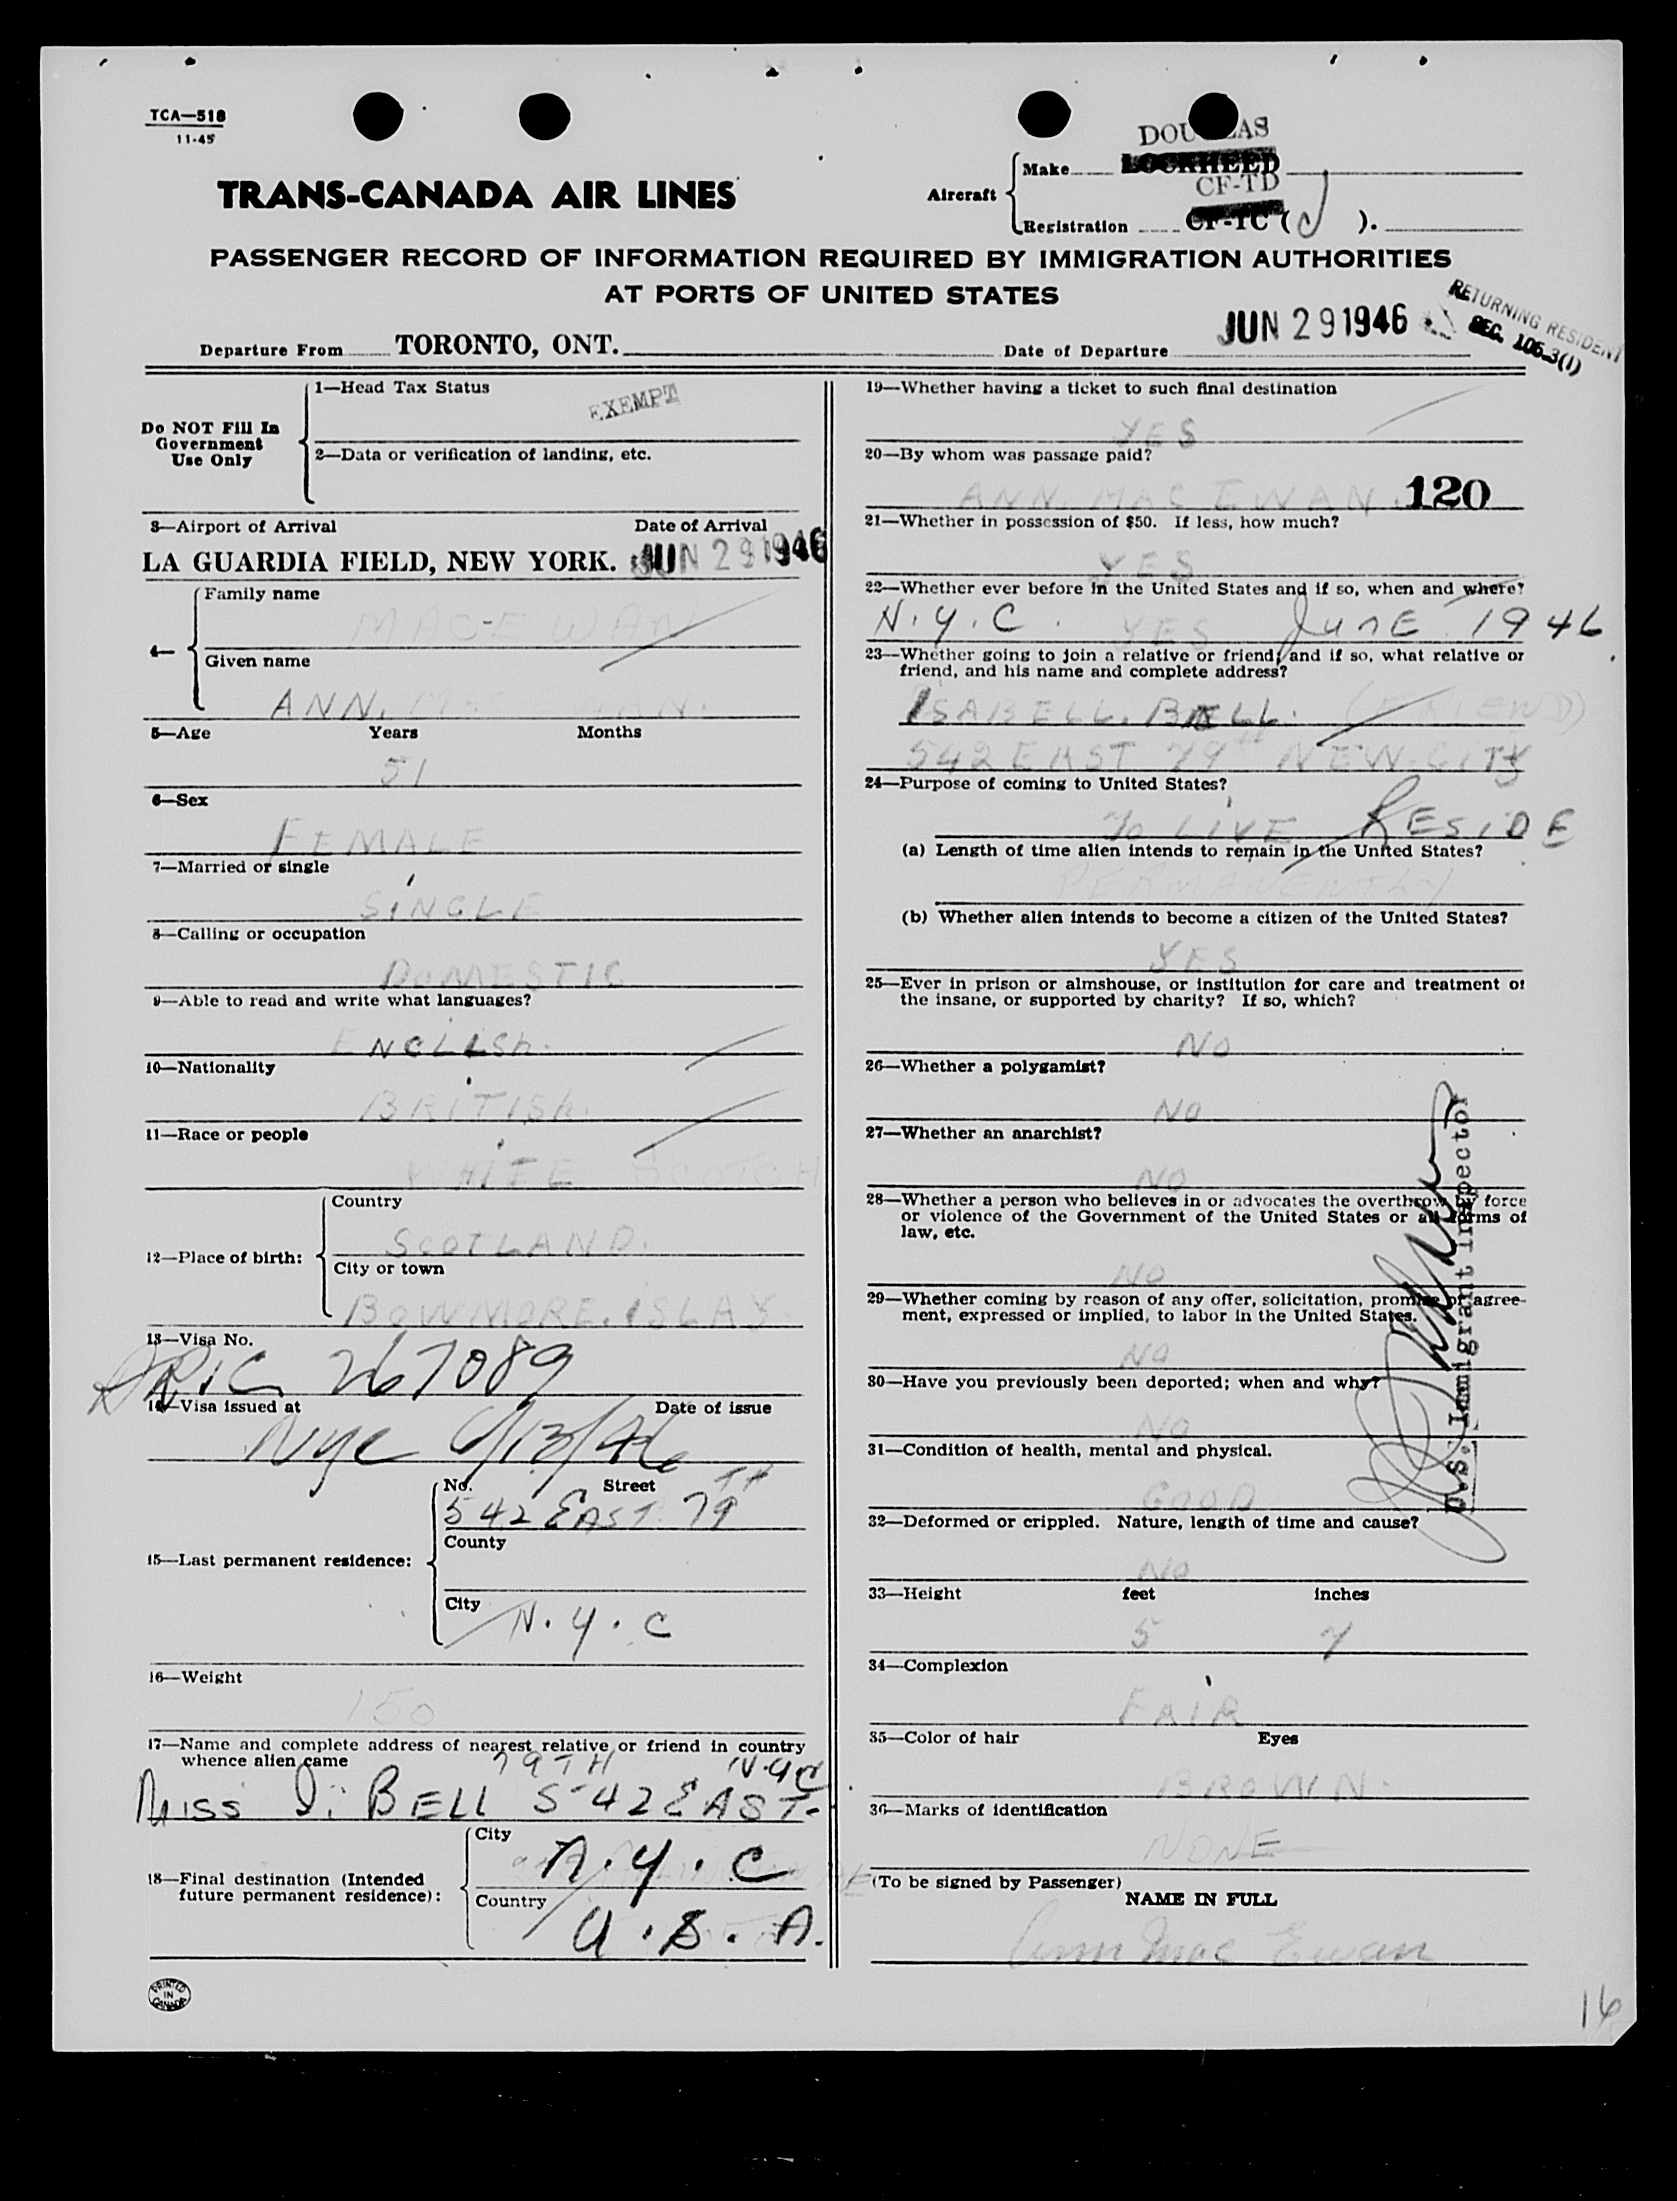 TCA—518
11-45
DOUGLAS
TRANS-CANADA AIR LINES
Aircraft
Make LOCKHEED
CF-TD
Registration CF-TC (J).
PASSENGER RECORD OF INFORMATION REQUIRED BY IMMIGRATION AUTHORITIES
AT PORTS OF UNITED STATES
RETURNING RESIDENT
SEC. 106.3(1)
Departure From TORONTO, ONT. Date of Departure JUN 29 1946
Do NOT Fill In
Government
Use Only
1—Head Tax Status EXEMPT
2—Data or verification of landing, etc.
3—Airport of Arrival Date of Arrival
LA GUARDIA FIELD, NEW YORK. JUN 29 1946
4—
Family name
MAC-EWAN
Given name
ANN.
5—Age Years Months
51
6—Sex
FEMALE
7—Married or single
SINGLE
8—Calling or occupation
DOMESTIC
9—Able to read and write what languages?
ENGLISh.
10—Nationality
BRITISh.
11—Race or people
WHITE SCOTCH
12—Place of birth:
Country
SCOTLAND.
City or town
BOWMORE. ISLAY.
13—Visa No.
267089
14—Visa issued at Date of issue
NYC 6/13/46
15—Last permanent residence:
No. Street
542 EAST 79TH
County
City
N.Y.C
16—Weight
150
17—Name and complete address of nearest relative or friend in country
whence alien came
79TH N.Y.C
MISS I. BELL 542 EAST-
18—Final destination (Intended
future permanent residence):
City
N.Y.C
Country
U.S.A.
PRINTED
IN
CANADA
19—Whether having a ticket to such final destination
YES
20—By whom was passage paid?
ANN. MAC EWAN. 120
21—Whether in possession of $50. If less, how much?
YES
22—Whether ever before in the United States and if so, when and where?
N.Y.C. YES JUNE 1946
23—Whether going to join a relative or friend, and if so, what relative or
friend, and his name and complete address?
ISABELL. BELL. (FRIEND)
542 EAST 79TH NEW. CITY
24—Purpose of coming to United States?
To LIVE RESIDE
(a) Length of time alien intends to remain in the United States?
PERMANENTLY
(b) Whether alien intends to become a citizen of the United States?
YES
25—Ever in prison or almshouse, or institution for care and treatment of
the insane, or supported by charity? If so, which?
NO
26—Whether a polygamist?
NO
27—Whether an anarchist?
NO
28—Whether a person who believes in or advocates the overthrow by force
or violence of the Government of the United States or all forms of
law, etc.
NO
29—Whether coming by reason of any offer, solicitation, promise or agree-
ment, expressed or implied, to labor in the United States.
NO
30—Have you previously been deported; when and why?
NO
31—Condition of health, mental and physical.
GOOD
32—Deformed or crippled. Nature, length of time and cause?
NO
U.S. Immigrant Inspector
33—Height feet inches
5 7
34—Complexion
FAIR
35—Color of hair Eyes
BROWN.
36—Marks of identification
NONE
(To be signed by Passenger)
NAME IN FULL
Ann Mac Ewan
16